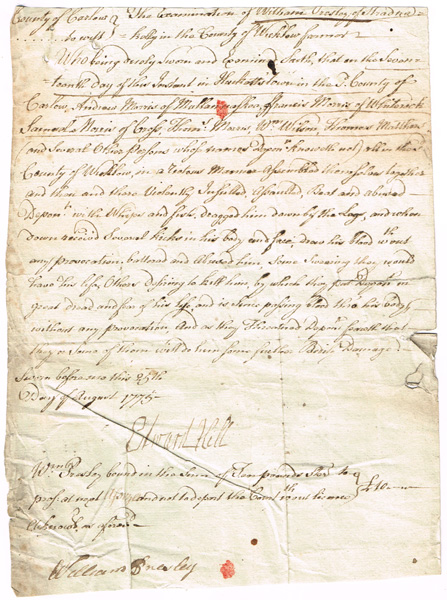 County of Carlow The Examination of William Presley of
to wit in the County of Wicklow farmer
Who being duly Sworn and Examined Saith, that on the Seven
teenth day of this Instant in Hacketstown in the Sd. County of
Carlow, Andrew Morris of Francis Morris of
Samuel Morris of Thoms. Wm. Wilson, Thomas
and Several Other Persons whose names Depont. knoweth not) all in the
County of Wicklow, in a Riotous Manner Assembled themselves together
and then and there Violently Insulted, Assaulted, Beat and abused
Depont. with Whips and fists, dragged him down by the Legs, and when
down received Several kicks in his body and face, drew his blood wth.out
any provocation, battered and Abused him, Some Swearing they would
have his life, Others desiring to kill him, by which they put Depont. in
great dread and fear of his life, and his body
without any provocation, And as they Threatened Depont. Saith that
they or some of them will do him some further Bodily Damage
Sworn before me this 25th
day of August 1775
Edward Hill
Wm. Presley bound in the Sum of pounds Ster. to £10
pros. at next and not to depart the Court wth.out
William Presley